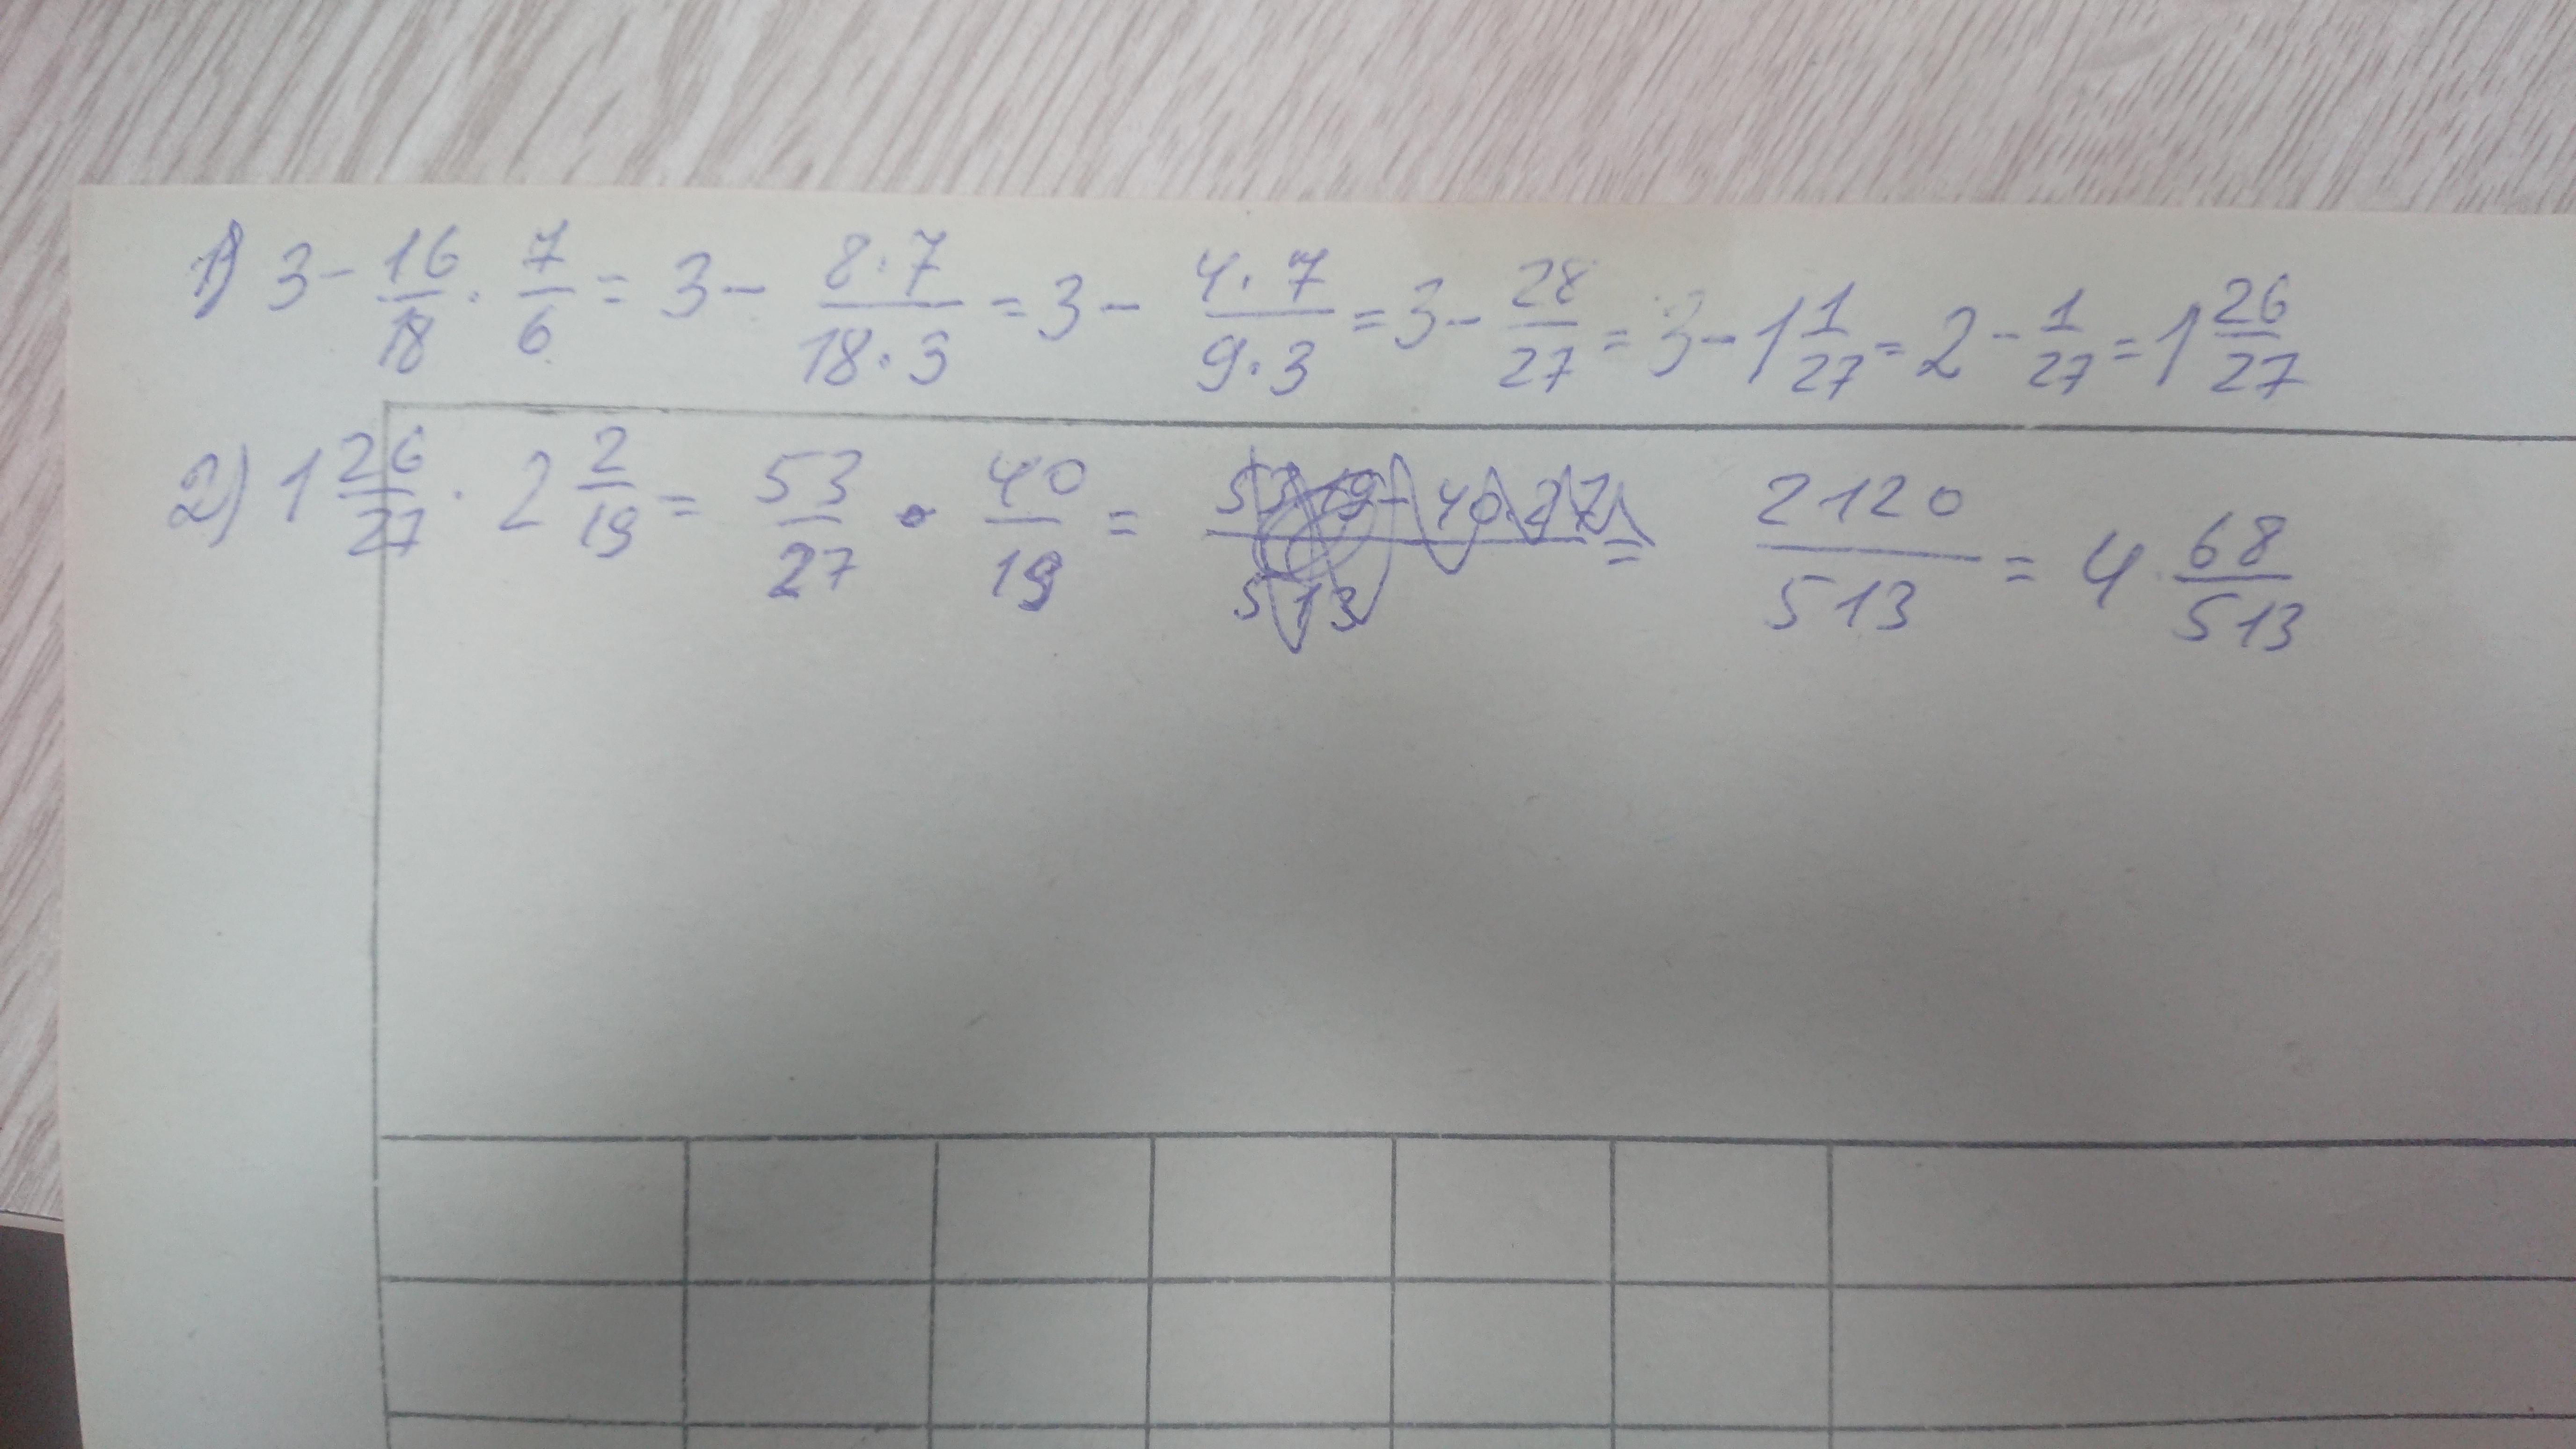 1) 3 - 16/18 · 7/6 = 3 - 8·7/18·3 = 3 - 4·7/9·3 = 3 - 28/27 = 3 - 1 1/27 = 2 - 1/27 = 1 26/27
2) 1 26/27 · 2 2/19 = 53/27 · 40/19 = 53·19-40·27/513 = 2120/513 = 4 68/513